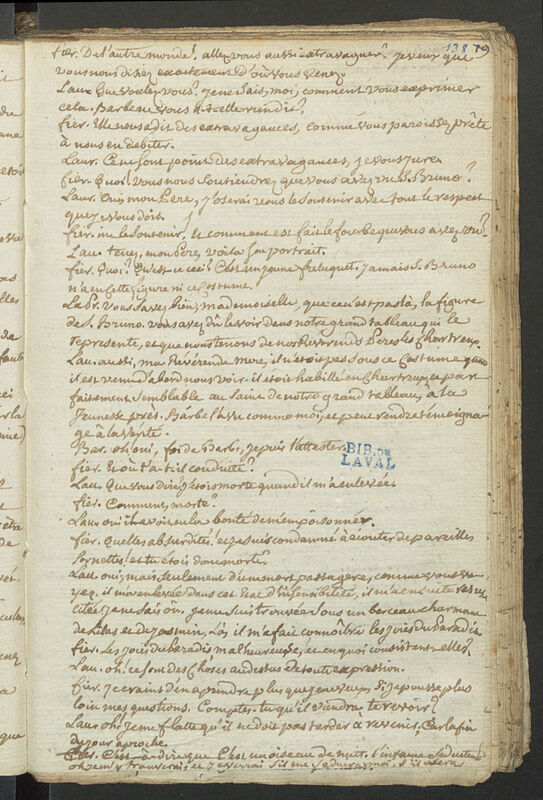 138 79
fier. De l'autre monde! allez vous aussi extravaguer? je veux que
vous nous disiez exactement d'où vous venez.
Laur. Que voulez vous? je ne sais, moi, comment vous exprimer
cela. Barbe ne vous a-t-elle rien dit?
fier. Elle nous a dit des extravagances, comme vous paroissez prête
à nous en debiter.
Laur. Ce ne sont point des extravagances, je vous jure.
fier. Quoi! vous nous soutiendrez que vous avez vu S. Bruno?
Laur. Oui, mon Pere, j'oserai vous le soutenir avec tout le respect
que je vous dois.
fier. me le soutenir. Et comment est fait le fourbe que vous avez vu?
Lau. tenez, mon Pere, voila son portrait.
fier. Quoi? Qu'est ce ceci? C'est un jeune freluquet. Jamais S. Bruno
n'a eu cette figure ni ce costume.
La Pr. Vous savez bien, mademoiselle, que ce n'est pas là, la figure
de S. Bruno. vous avez dû le voir dans notre grand tableau qui le
represente, et que nous tenons de nos Révérends Peres les Chartreux.
Lau. aussi, ma Révérende Mere, il n'étoit pas sous ce costume quand
il est venu d'abord nous voir. il étoit habillé en Chartreux, et par
faitement semblable au Saint de notre grand tableau, à la
Jeunesse près. Barbe l'a vu comme moi, et peut rendre témoigna-
ge à la vérité.
Bar. oh! oui, foi de Barbe, je puis l'attester.
fier. Et où t'a-t-il conduite?
BIB. DE
LAVAL
Lau. Que vous dirai-je? étois morte quand il m'a enlevée.
fier. Comment, morte?
Lau. oui il avoit eu la bonté de m'empoisonner.
fier. Quelles absurdités! et je suis condamné à écouter de pareilles
Sornettes! et tu étois donc morte?
Lau. oui, mais seulement d'une mort passagere, comme vous vo-
yez. il m'a enlevée dans cet état d'insensibilité, il m'a ensuite ressus
citée je ne sais où. je me suis trouvée sous un berceau charmant
de Lilas et de Jasmin. Là, il m'a fait connoître les joies du Paradis.
fier. Les joies du Paradis, malheureuse, et en quoi consistent-elles?
Lau. oh! ce sont des choses au dessus de toute expression.
fier. je crains d'en aprendre plus que je ne veux, si je pousse plus
loin mes questions. Comptes-tu qu'il viendra te revoir?
Lau. oh! je me flatte qu'il ne doit pas tarder à revenir, Car la fin
du jour aproche.
fier. C'est-à-dire que C'est un oiseau de nuit. l'infame seducteur!